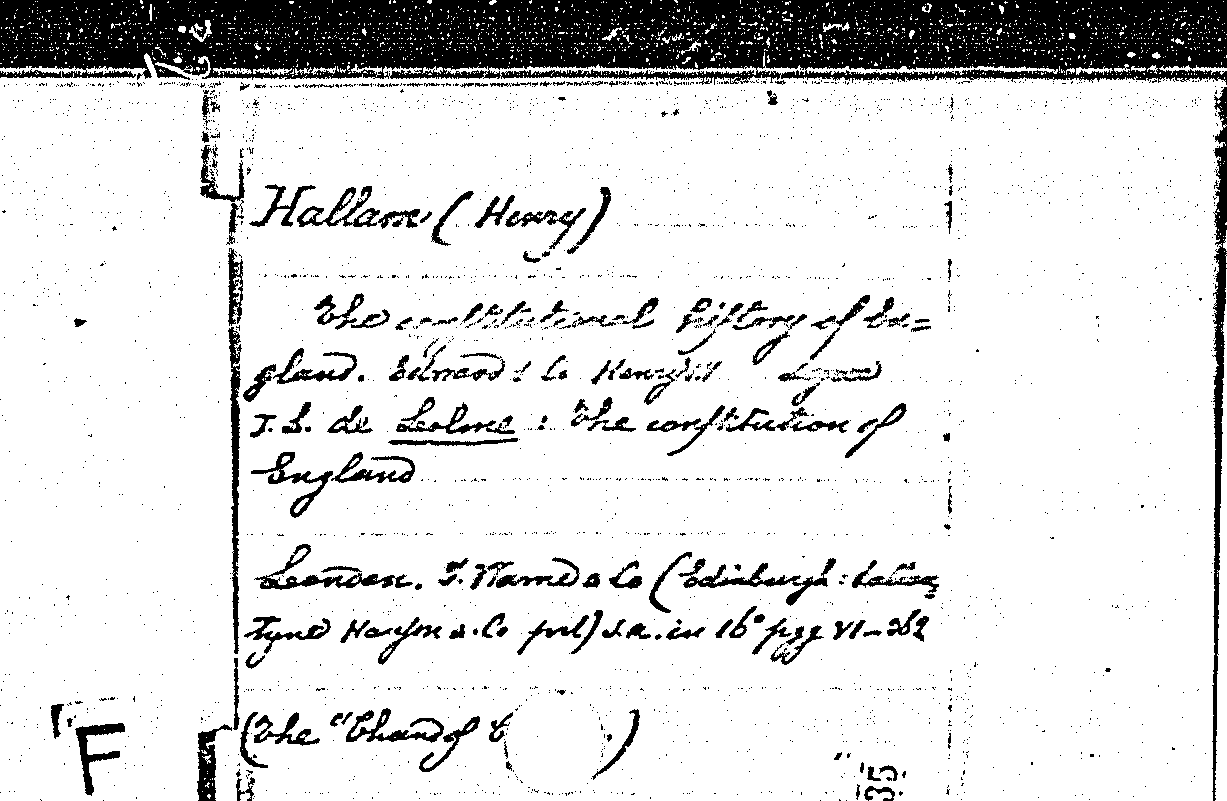 Hallam (Henry)
The constitutional history of En=
gland. Edward I to Henry VII
J. L. de Lolme : The constitution of
England
London. F. Warne & Co (Edinburgh:
tyne Hanson & Co prt) s.a. in 16° pgg VI-362
(The "Chandos )
F
35